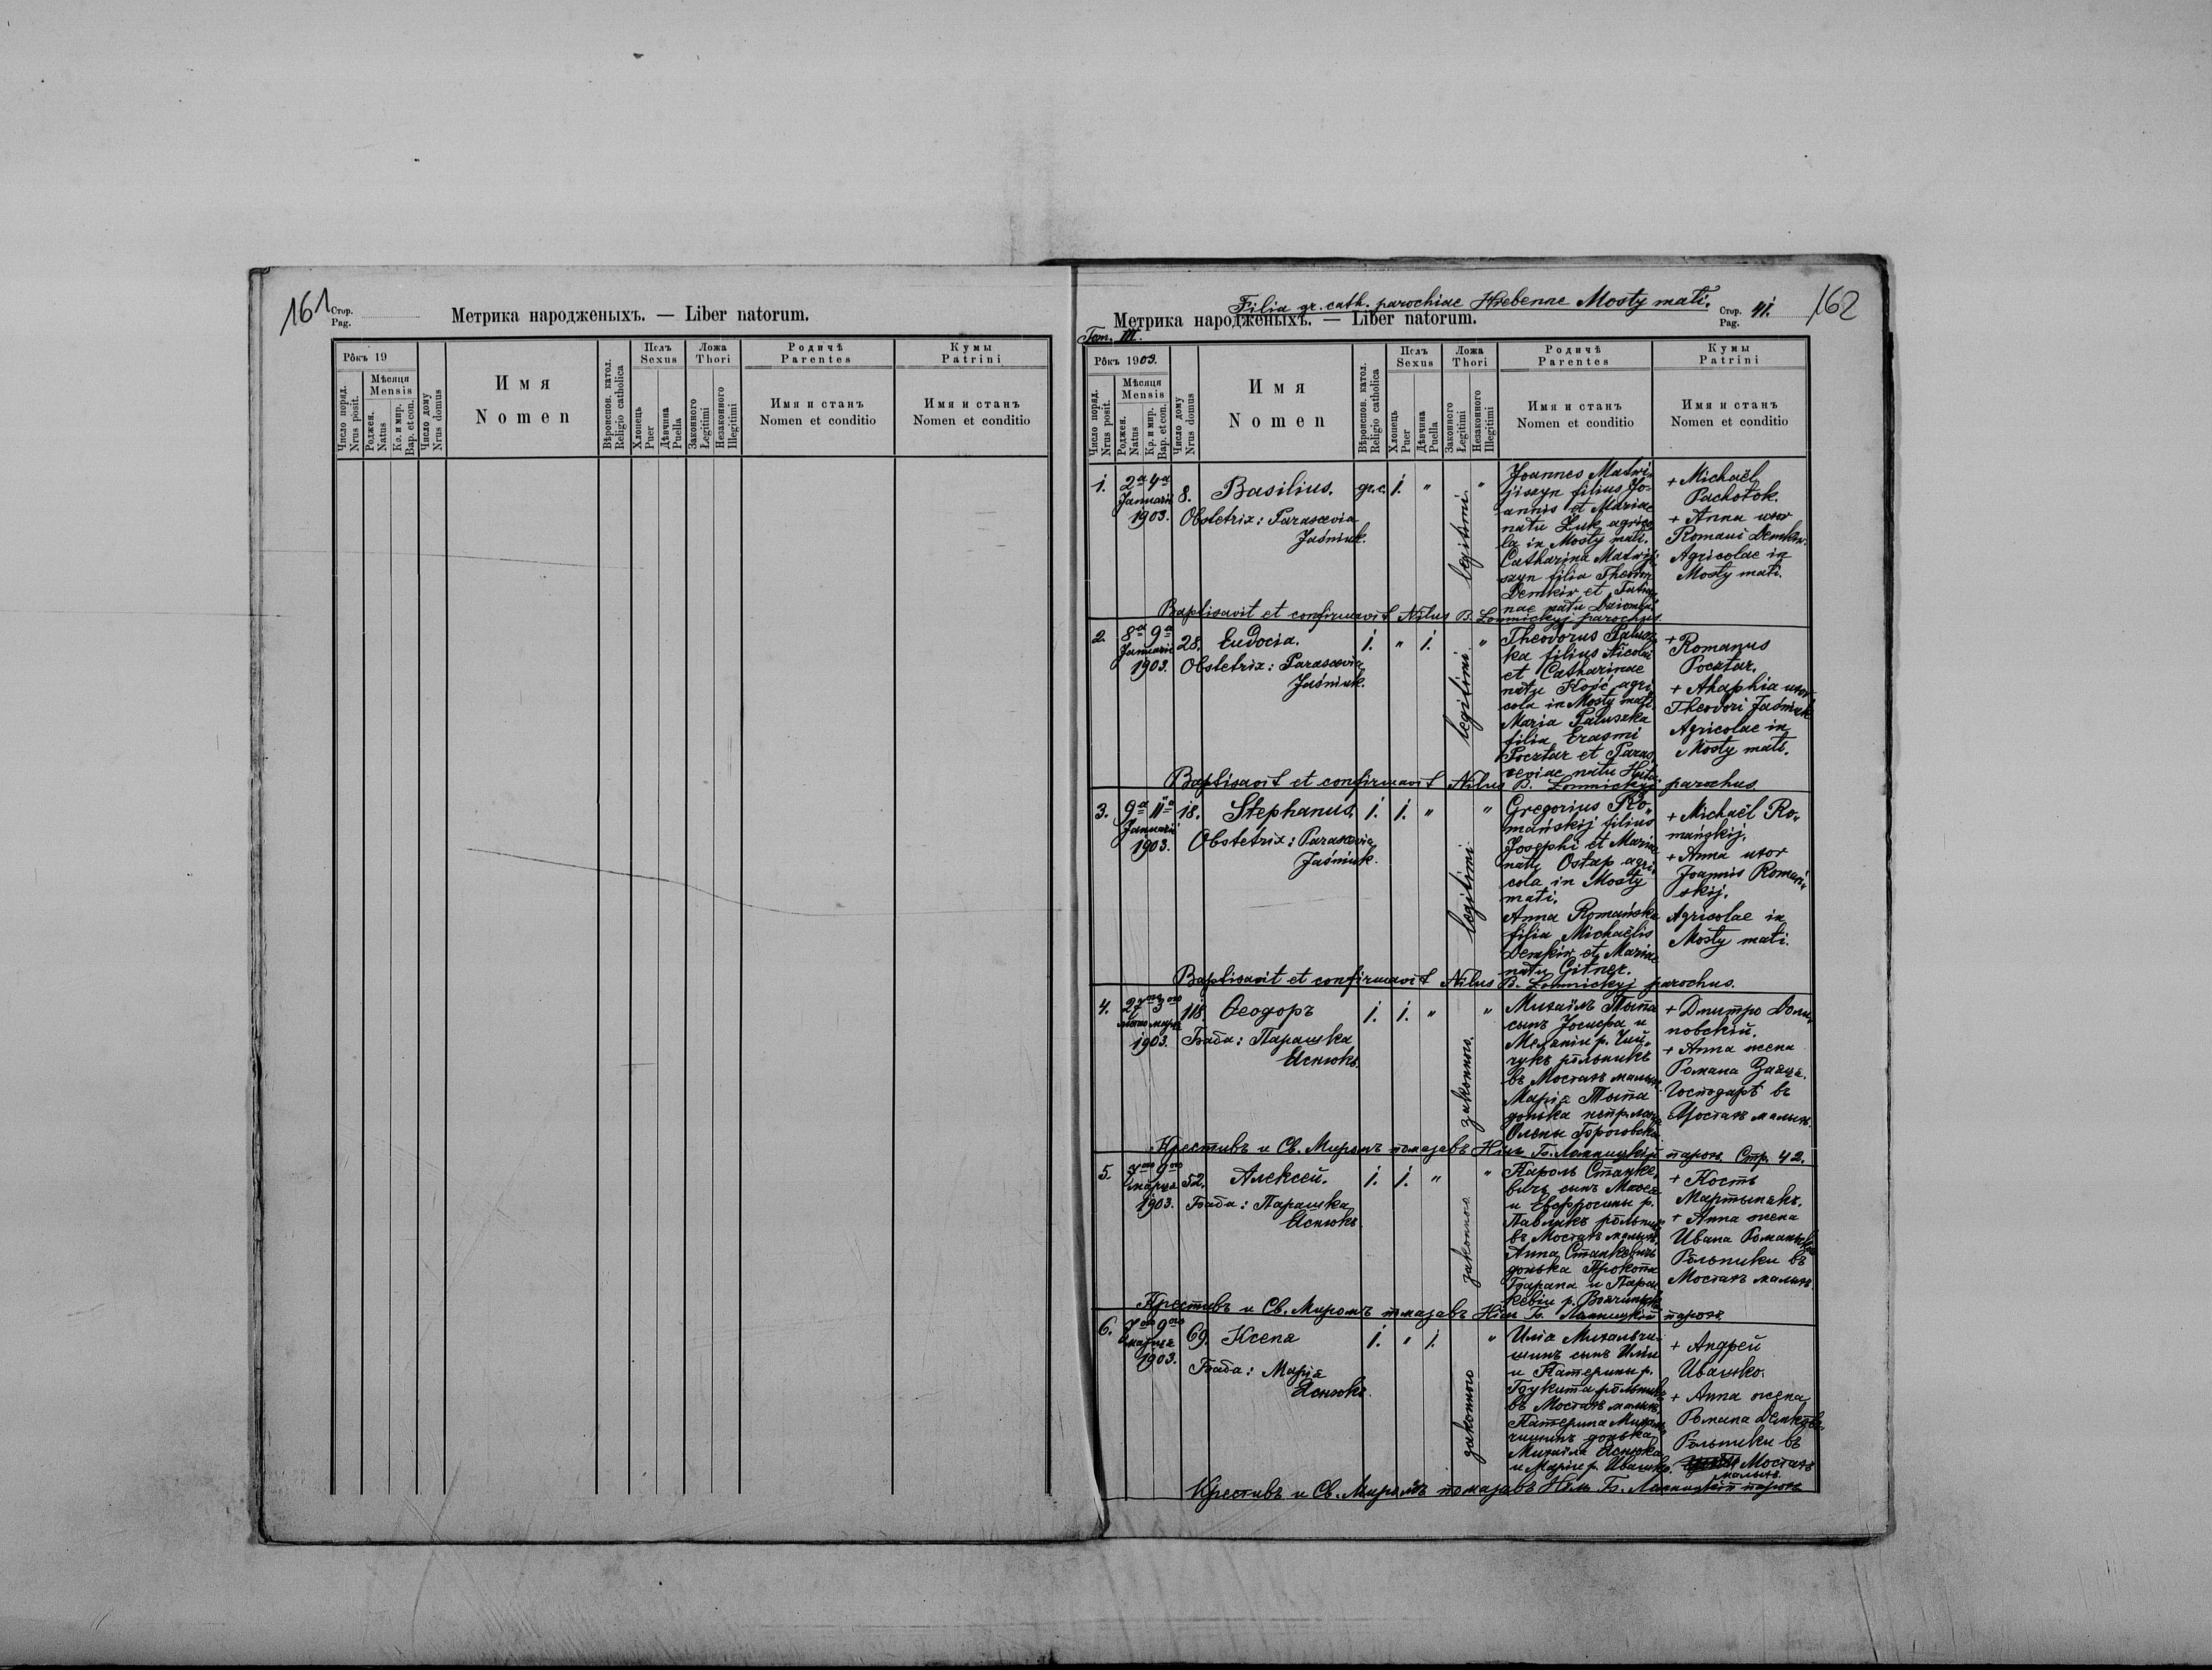 161
Стор.
Pag.
Метрика народженыхъ. — Liber natorum.
Рôкъ 19
Число поряд.
Nrus posit.
Мѣсяця
Mensis
Роджен.
Natus
Кр. и мир.
Bap. et con.
Число дому
Nrus domus
Имя
Nomen
Вѣроиспов. катол.
Religio catholica
Полъ
Sexus
Хлопець
Puer
Дѣвчина
Puella
Ложа
Thori
Законного
Legitimi
Незаконного
Illegitimi
Родичѣ
Parentes
Имя и станъ
Nomen et conditio
Кумы
Patrini
Имя и станъ
Nomen et conditio
Filia gr. cath. parochiae Hrebenne Mosty mali.
Метрика народженыхъ. — Liber natorum.
Стор.
Pag.
41.
162
Tom. III.
Рôкъ 1903.
Число поряд.
Nrus posit.
Мѣсяця
Mensis
Роджен.
Natus
Кр. и мир.
Bap. et con.
Число дому
Nrus domus
Имя
Nomen
Вѣроиспов. катол.
Religio catholica
Полъ
Sexus
Хлопець
Puer
Дѣвчина
Puella
Ложа
Thori
Законного
Legitimi
Незаконного
Illegitimi
Родичѣ
Parentes
Имя и станъ
Nomen et conditio
Кумы
Patrini
Имя и станъ
Nomen et conditio
1. 2a 4a
Januarii
1903.
8. Basilius. gr.c. 1. " legitimi. "
Obstetrix: Parascevia
Jaśniuk.
Joannes Matwi-
jiszyn filius Jo-
annis et Mariae
natu Łuk agrico
la in Mosty mali.
Catharina Matwiji-
szyn filia Theodori
Demkiw et Tatia-
nae natu
+ Michaël
Pachołok.
+ Anna uxor
Romani Demkiw.
Agricolae in
Mosty mali.
Baptisavit et confirmavit Nilus B. Łomnickyj parochus.
2. 8a 9a
Januarii
1903.
28. Eudocia. 1. " 1. legitimi "
Obstetrix: Parascevia
Jaśniuk.
Theodorus Palusz-
ka filius Nicolai
et Catharinae
natu Kość agri
cola in Mosty mali.
Maria Paluszka
filia Erasmi
Pocztar et Paras
ceviae natu
+ Romanus
Pocztar.
+ Ahaphia uxor
Theodori Jaśniuk
Agricolae in
Mosty mali.
Baptisavit et confirmavit Nilus B. Łomnickyj parochus.
3. 9a 11a
Januarii
1903.
18. Stephanus. 1. 1. " legitimi "
Obstetrix: Parascevia
Jaśniuk.
Gregorius Ro-
mańskij filius
Josephi et Mariae
natu Ostap agri-
cola in Mosty
mali.
Anna Romańska
filia Michaëlis
Demkiw et Mariae
natu Gitner.
+ Michaël Ro-
mańskij.
+ Anna uxor
Joannis Romań-
skij.
Agricolae in
Mosty mali.
Baptisavit et confirmavit Nilus B. Łomnickyj parochus.
4. 27го 3го
марта
1903.
118. Ѳеодоръ 1. 1. " законного. "
Баба: Парашка
Яснюкъ.
Михаилъ Тыпа
сынъ Іосифа и
Меланіи р.
рôльникъ
въ Мостахъ малыхъ.
Марія Тыпа
донька
Олены
+ Дмитро
новскій.
+ Анна жена
Романа Заяца.
Господарѣ въ
Мостахъ малыхъ.
Крестивъ и Св. Миромъ помазавъ Нілъ Б. Ломницкій парох. Стр. 42.
5. 7го 9го
марця
1903.
52. Алексей. 1. 1. " законного "
Баба: Парашка
Яснюкъ
Кароль Станке
вичъ сынъ
и Евфросины р.
Павлукъ рôльникъ
въ Мостахъ малыхъ.
Анна Станкевичъ
донька Прокопа
Барана и Парас
кевіи р.
+ Кость
Мартынякъ.
+ Анна жена
Ивана
Рôльники въ
Мостахъ малыхъ.
Крестивъ и Св. Миромъ помазавъ Нілъ Б. Ломницкій парох.
6. 7го 9го
марця
1903.
69. Ксеня 1. " 1. законного "
Баба: Марія
Яснюкъ.
Илія Михальчи-
шинъ сынъ Иліи
и Катерины р.
рôльникъ
въ Мостахъ малыхъ.
Катерина Михаль
чишинъ донька
Михайла Яснюка
и Маріи р. Ивашко.
+ Андрей
Ивашко.
+ Анна жена
Романа Демковъ.
Рôльники въ
Мостахъ
малыхъ.
Крестивъ и Св. Миромъ помазавъ Нілъ Б. Ломницкій парохъ